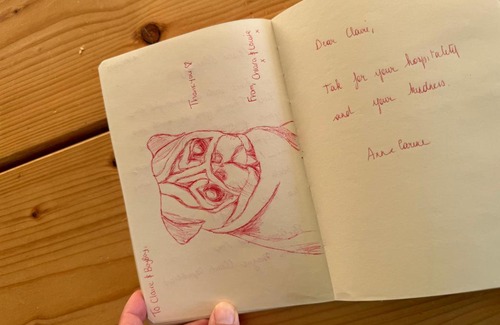 To Claire & Bugsy,
Thank you ♡
From Charo & Louise
x x
Dear Claire,
Tak for your hospitality
and your kindness.
Anne Carine